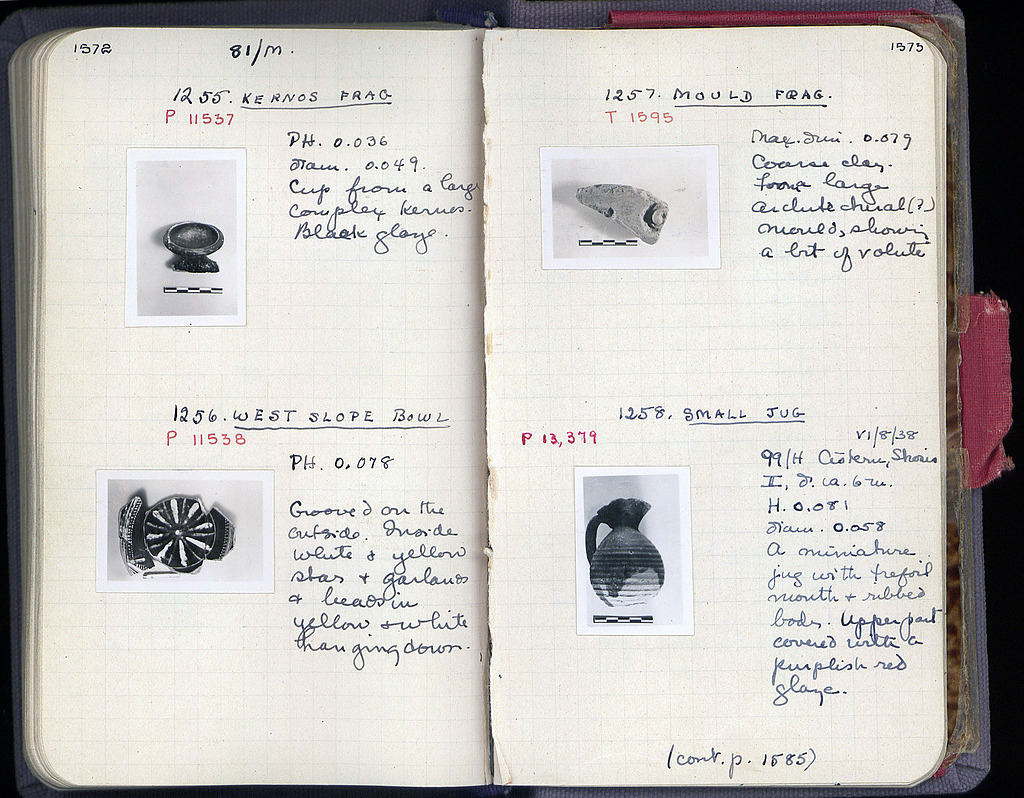 1572
81/M.
1255. KERNOS FRAG
P 11537
PH. 0.036
Diam. 0.049.
Cup from a large
complex kernos.
Black glaze.
1256. WEST SLOPE BOWL
P 11538
PH. 0.078
Grooved on the
outside. Inside
white & yellow
star & garlands
& beads in
yellow & white
hanging down.
1573
1257. MOULD FRAG.
T 1595
Max. dim. 0.079
Coarse clay.
From large
architectural (?)
mould, showing
a bit of volute
1258. SMALL JUG
P 13,379
VI/8/38
99/H Cistern,
II, d. ca. 6 m.
H. 0.081
Diam. 0.058
A miniature
jug with trefoil
mouth & ribbed
body. Upper part
covered with a
purplish red
glaze.
(cont. p. 1585)